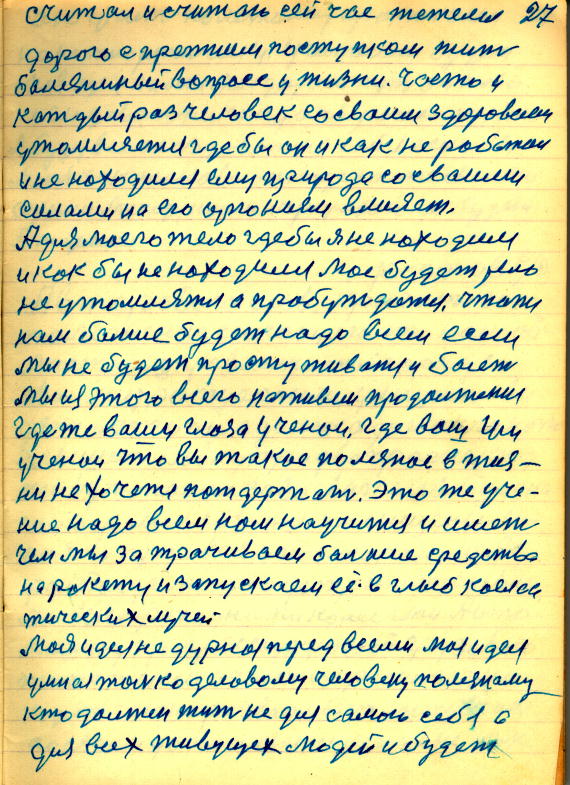 считал и считаю сей час тежелы 27
дорого с прежнием поступком жит
болезниный вопрос у жизни. Часто и
каждый раз человек со своим здоровеем
утомляется где бы он и как не работал
и не находился ему природа со своими
силами на его организм влияет.
А для моего тело где бы я не находился
и как бы не находился мое будет тело
не утомлятся а пробуждатся. Что ти
нам болше будет надо всем если
мы не будет простуживатся и болет
мы из этого всего наживем продолжения
Где же ваши глоза ученои, где ваш Ум
ученои что вы такое полезное в жиз—
ни не хочете потдержат. Это же уче-
ние надо всем нам научится и имет
чем мы затрачиваем болшие средства
на ракету и запускаем её в глыб косми
тических лучей
Моя идея не дурноя перед всеми моя идея
умная толко деловому человеку полезному
кто должен жит не для самого себя а
для всех живущех людей и будет